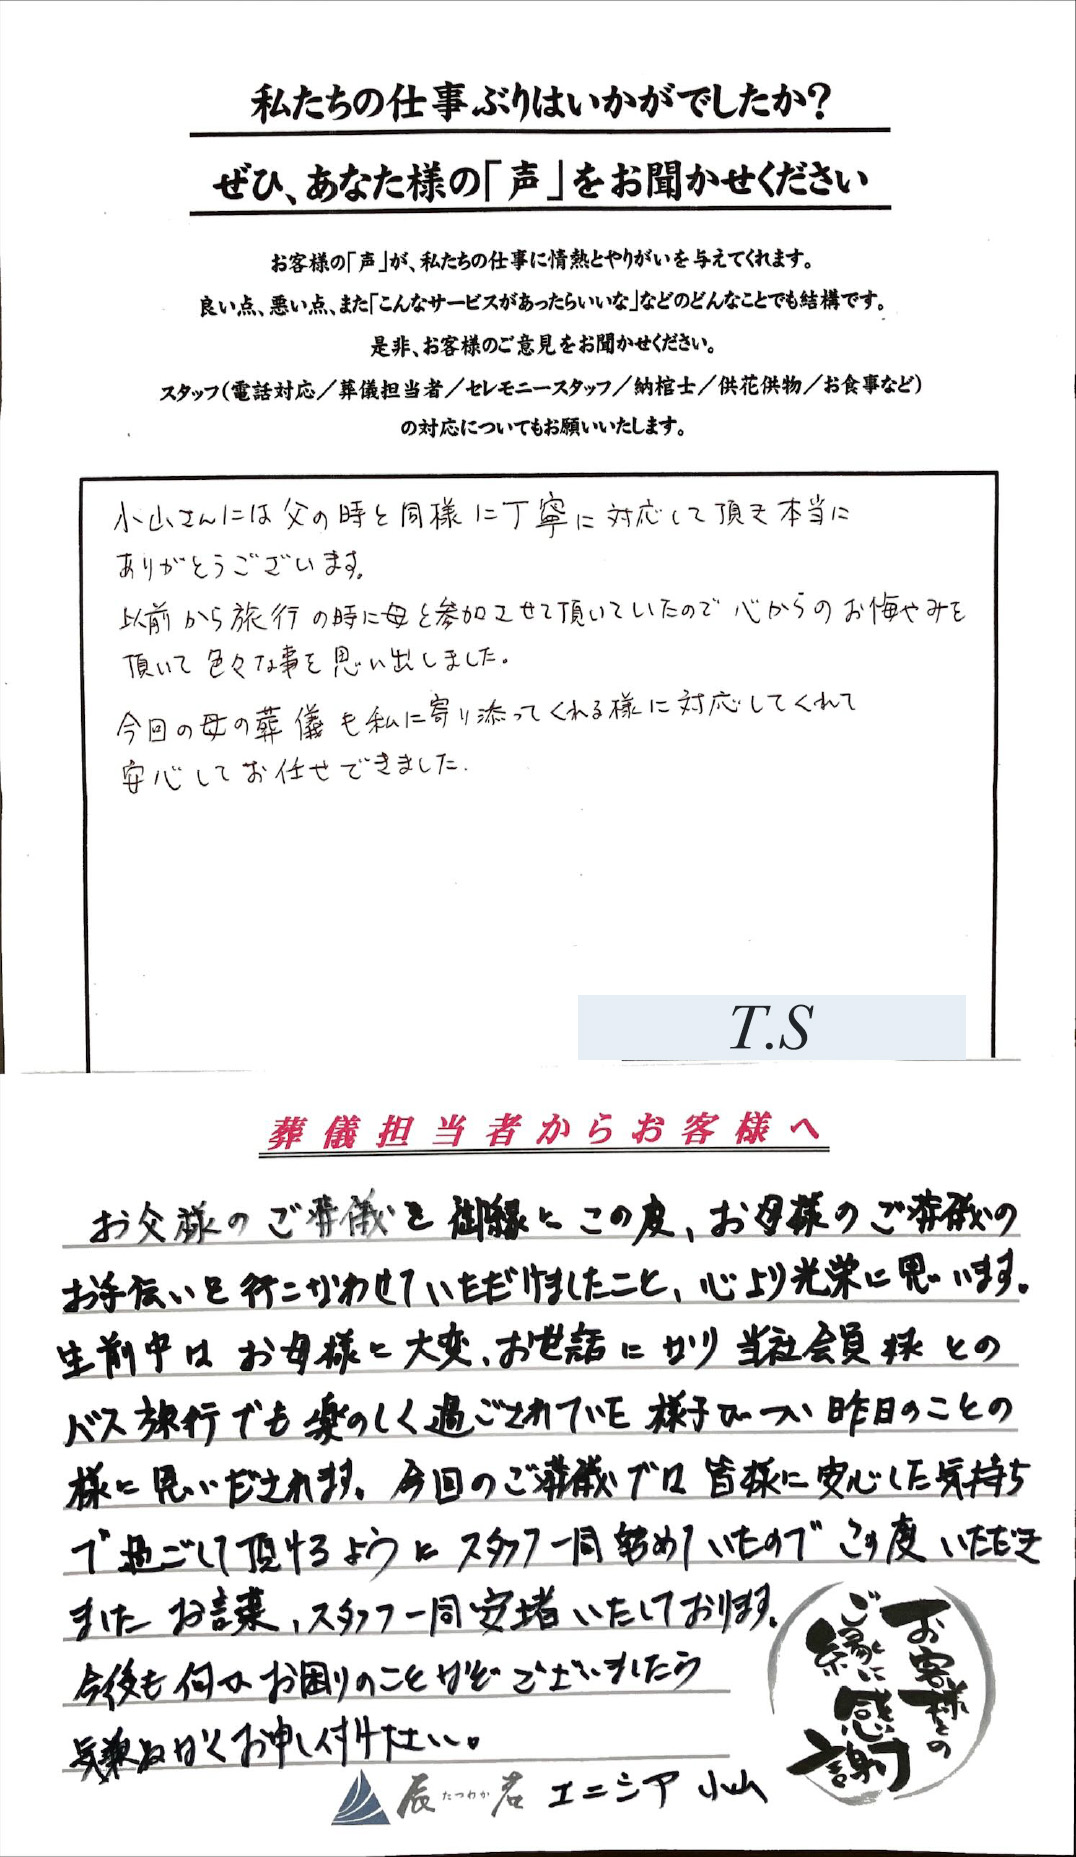 私たちの仕事ぶりはいかがでしたか?
ぜひ、あなた様の「声」をお聞かせください
お客様の「声」が、私たちの仕事に情熱とやりがいを与えてくれます。
良い点、悪い点、また「こんなサービスがあったらいいな」などのどんなことでも結構です。
是非、お客様のご意見をお聞かせください。
スタッフ(電話対応/葬儀担当者/セレモニースタッフ/納棺士/供花供物/お食事など)
の対応についてもお願いいたします。
小山さんには父の時と同様に丁寧に対応して頂き本当に
ありがとうございます。
以前から旅行の時に母と参加させて頂いていたので心からのお悔やみを
頂いて色々な事を思い出しました。
今回の母の葬儀も私に寄り添ってくれる様に対応してくれて
安心してお任せできました.
T.S
葬儀担当者からお客様へ
お父様のご葬儀を御縁にこの度、お母様のご葬儀の
お手伝いを行こなわせていただけましたこと、心より光栄に思います。
生前中はお母様に大変、お世話になり当社会員様との
バス旅行でも楽のしく過ごされていた様子がつい昨日のことの
様に思いだされます。今回のご葬儀では皆様に安心した気持ち
で過ごして頂けるようにスタッフ一同努めていたのでこの度いただき
ましたお言葉、スタッフ一同安堵いたしております。
今後も何かお困りのことなどございましたら
気兼ねなくお申し付け下さい。
お客様との
ご縁に感謝
辰たつわか若 エニシア 小山